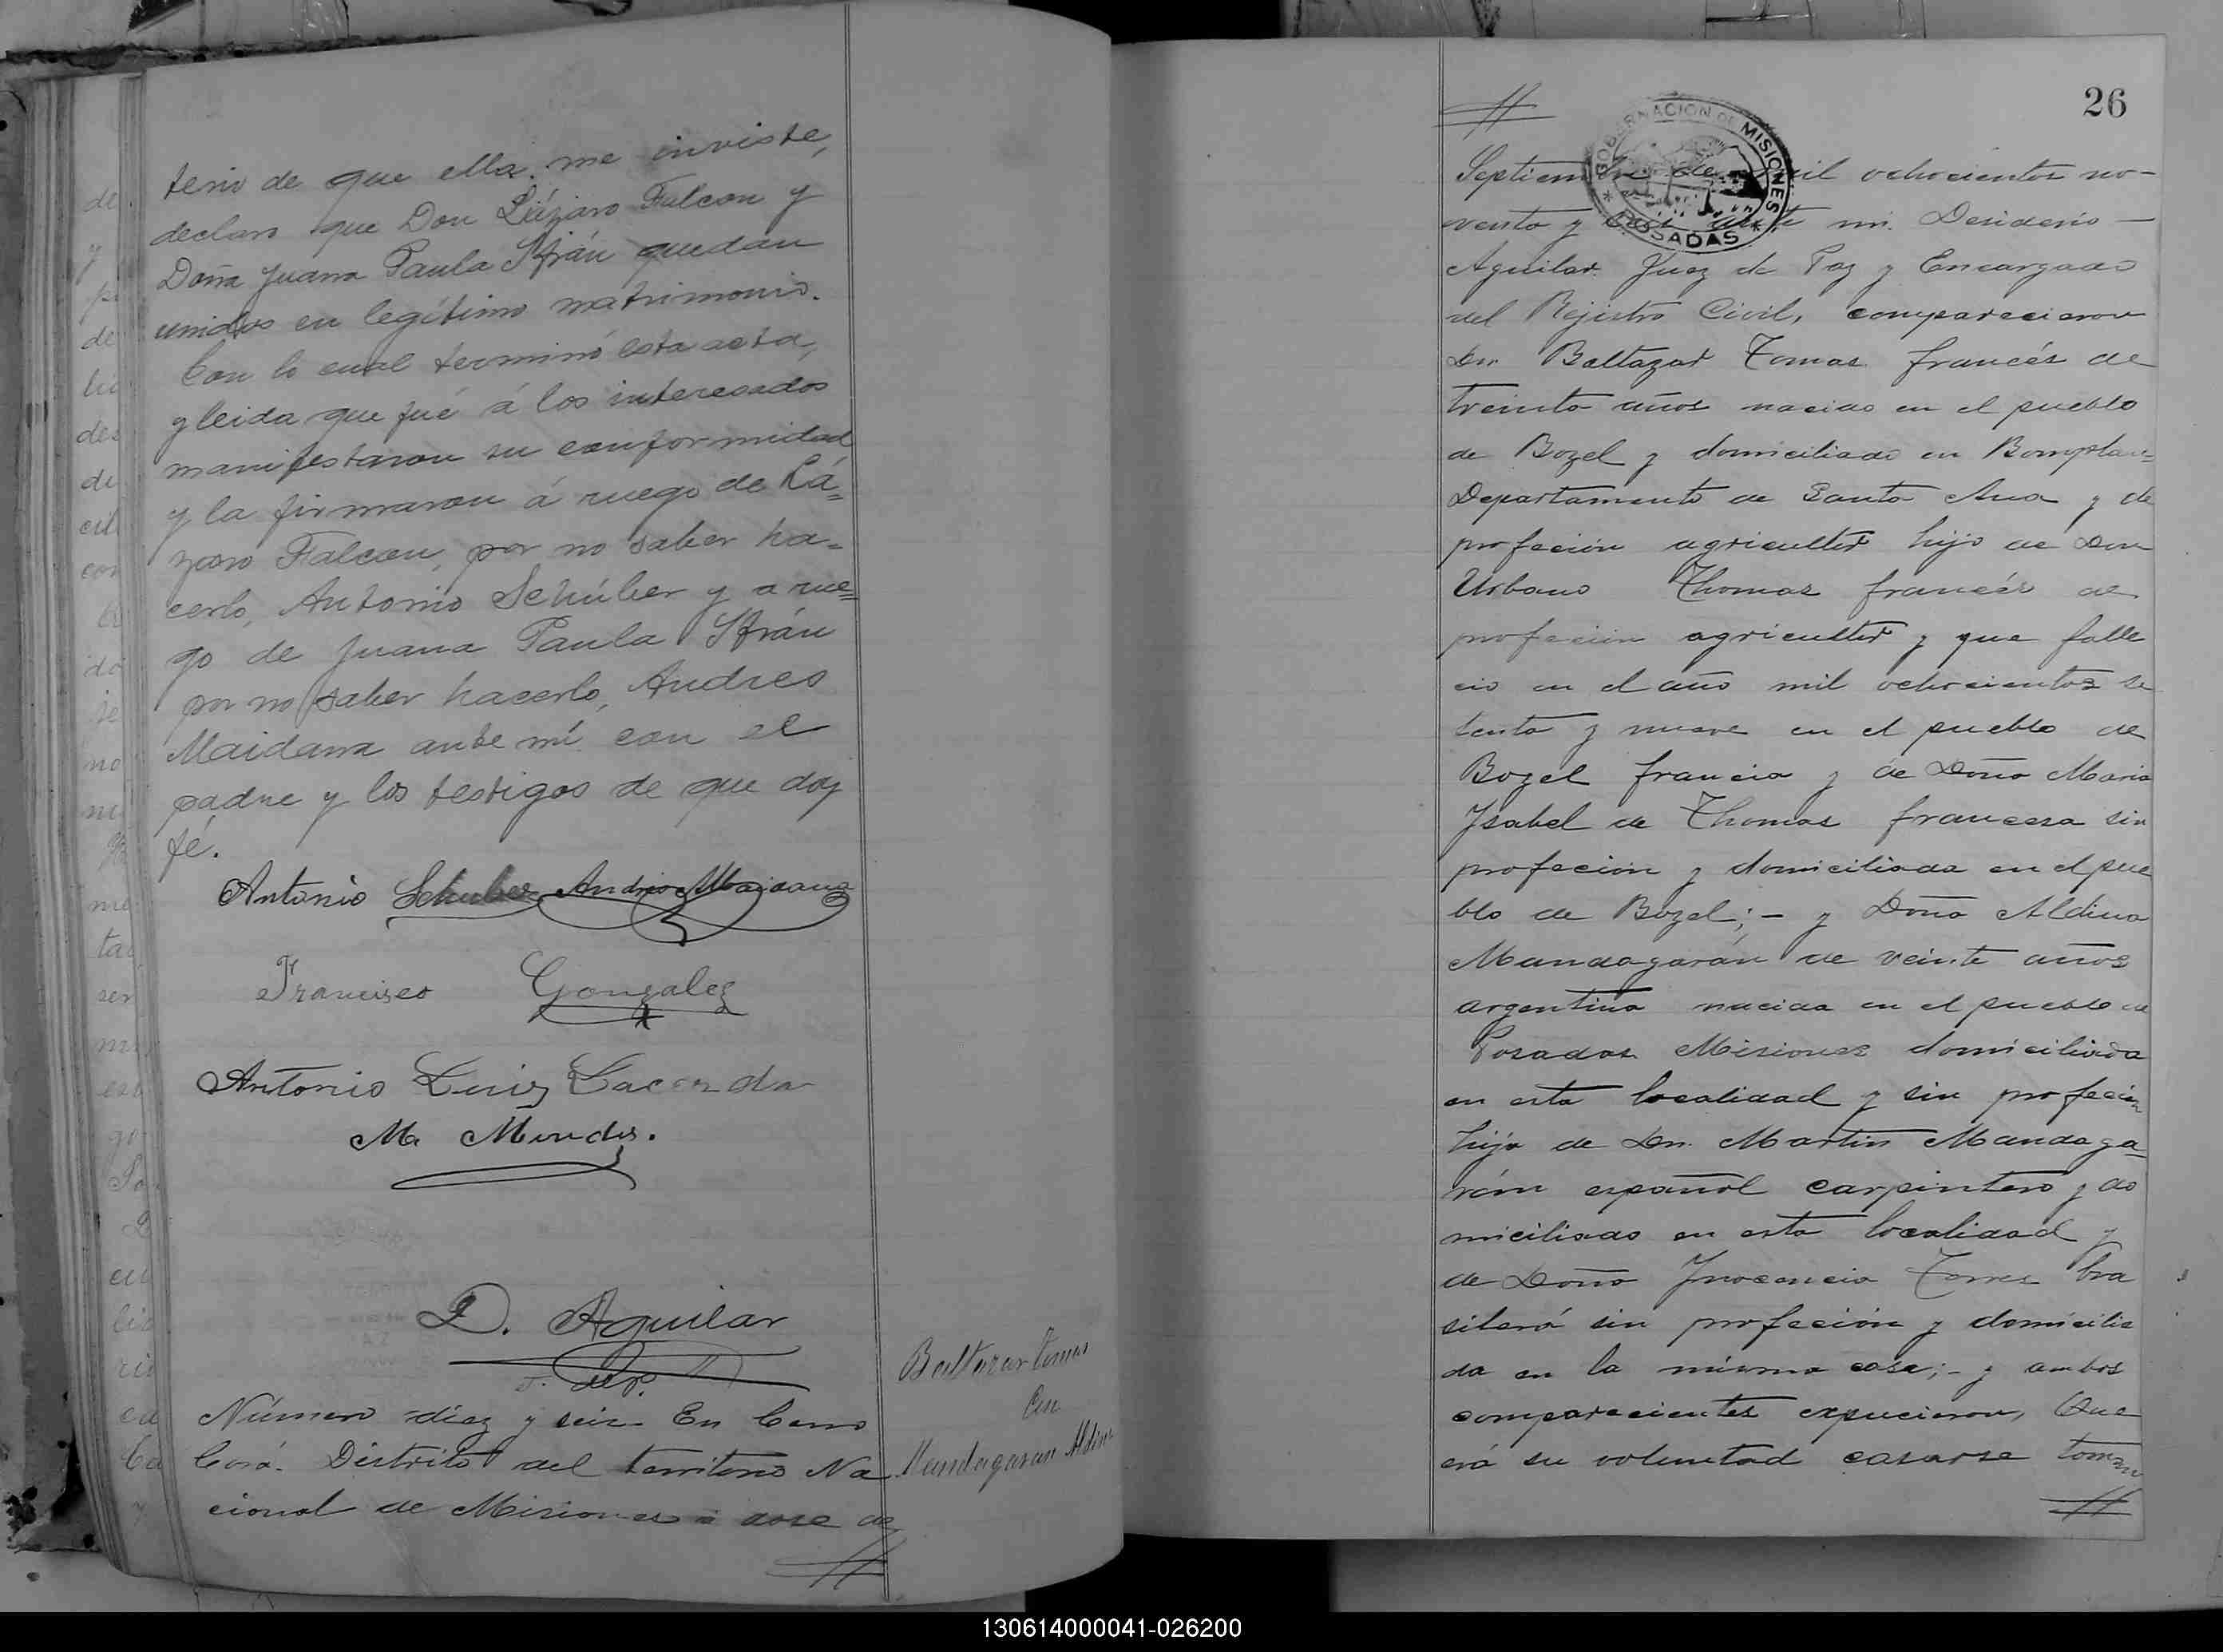 terio de que ella me inviste,
declaro que Don Lázaro Falcon y
Doña Juana Paula Ifrán quedan
unidos en legítimo matrimonio.
Con lo cual terminó esta acta,
y leida que fué á los interesados
manifestaron su conformidad
y la firmaron á ruego de Lá=
zaro Falcon, por no saber ha=
cerlo, Antonio Schúber y a rue=
go de Juana Paula Ifrán
por no saber hacerlo, Andres
Maidana ante mí con el
padre y los testigos de que doy
fé.
Antonio Schuber Andres Maidana
Francisco Gonzalez
Antonio Luiz Lacerda
M. Mendes.
D. Aguilar
J. de P.
Número diez y seis En Cerro
Corá. Distrito del territorio Na
cional de Misiones a doce de
Baltazar Tomas
Con
Mandagaran Aldina
26
GOBERNACION DE MISIONES
POSADAS
Septiembre de mil ochocientos no-
venta y ante mi Desiderio
Aguilar Juez de Paz y Encargado
del Rejistro Civil, comparecieron
Dn. Baltazar Tomas francés de
treinta años nacido en el pueblo
de Bozel y domiciliado en Bompland=
Departamento de Santa Ana y de
profeción agricultor hijo de Don
Urbano Thomas francés de
profeción agricultor y que falle
cio en el año mil ochocientos se
tenta y nueve en el pueblo de
Bozel francia y de Doña Maria
Ysabel de Thomas francesa sin
profeción y domiciliada en el pue
blo de Bozel;- y Doña Aldina
Mandagarán de veinte años
argentina nacida en el pueblo de
Posadas Misiones domiciliada
en esta localidad y sin profecion
hija de Dn. Martin Mandaga=
rán español carpintero y do
miciliado en esta localidad y
de Doña Inocencia Torres bra
silerá sin profeción y domicilia
da en la misma casa;- y ambos
comparecientes expucieron, Que
erá su voluntad casarse toman
130614000041-026200